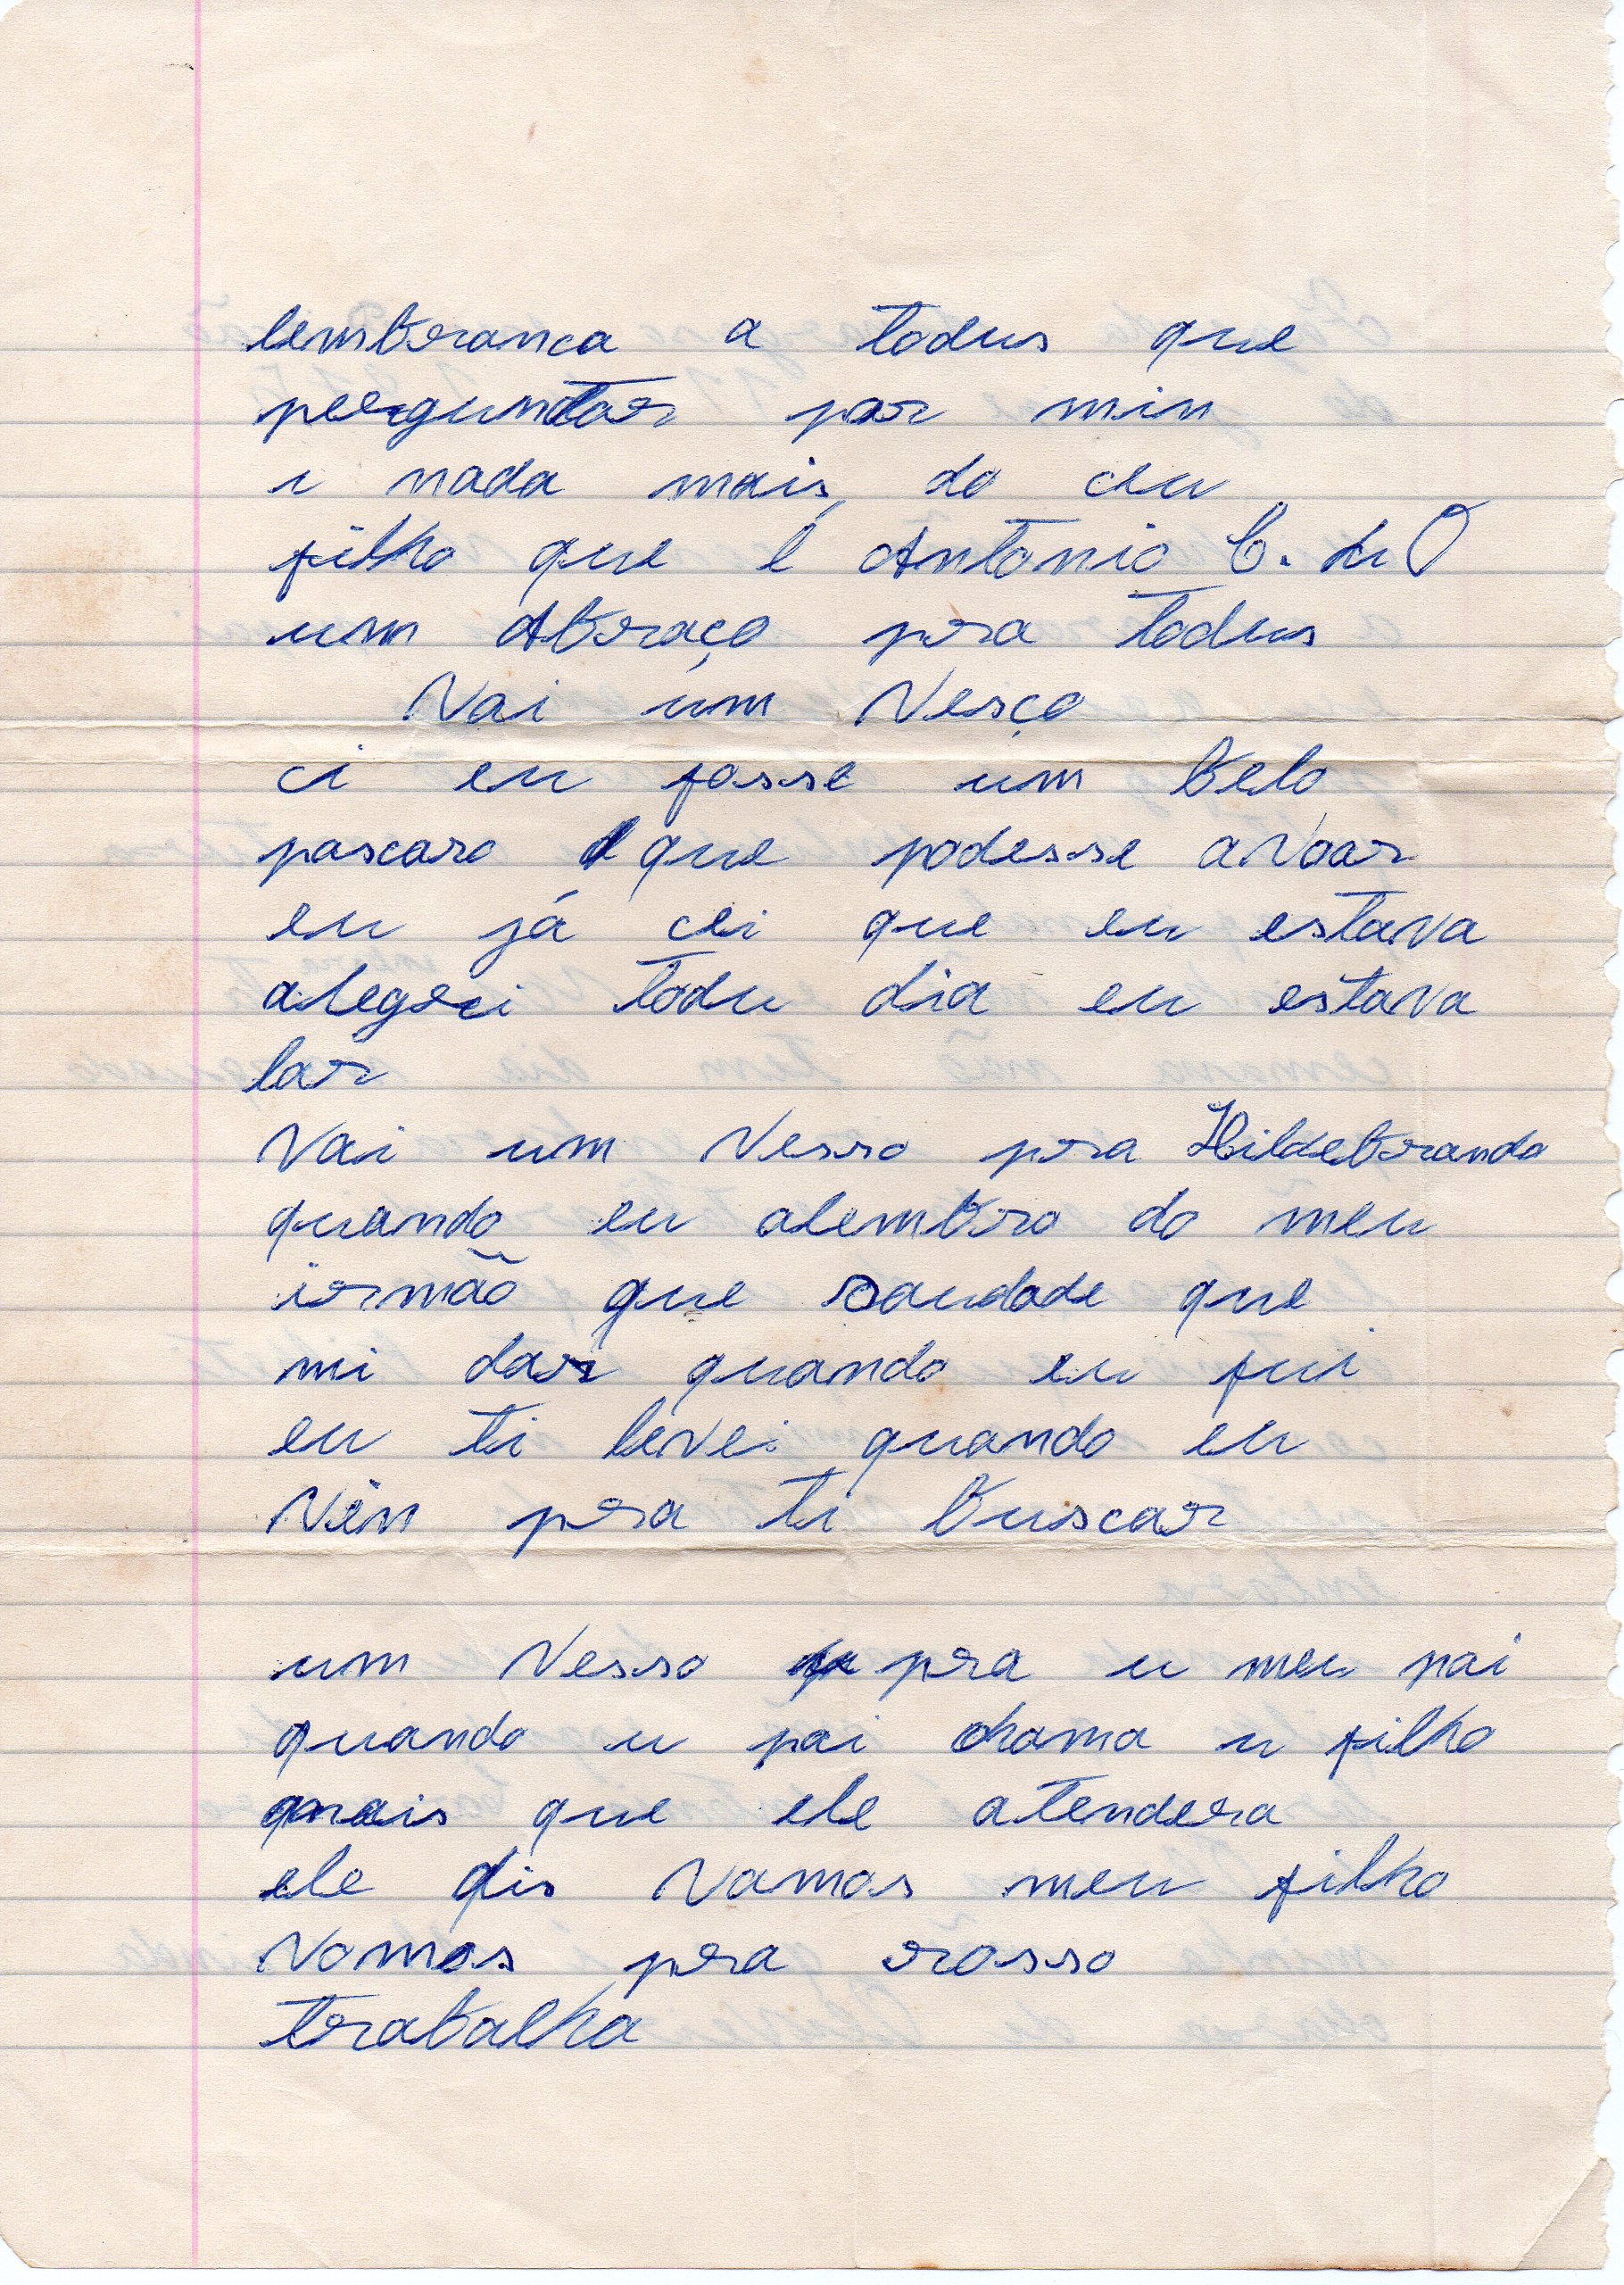 lembranca a todus que
perguntar por min
i nada mais do ceu
filho que é Antonio C. L. O
um Abraço pra todus
Vai um Vesço
ci eu fosse um belo
pascaro que podesse avoar
eu já cei que eu estava
alegri todu dia eu estava
lar
Vai um Vesso pra Hildebrando
quando eu alembro do meu
irmão que saudade que
mi dar quando eu fui
eu ti levei quando eu
Vin pra ti buscar
um Vesso pra u meu pai
quando u pai chama u filho
mais que ele atendera
ele dis Vamos meu filho
Vamos pra rosso
trabalha